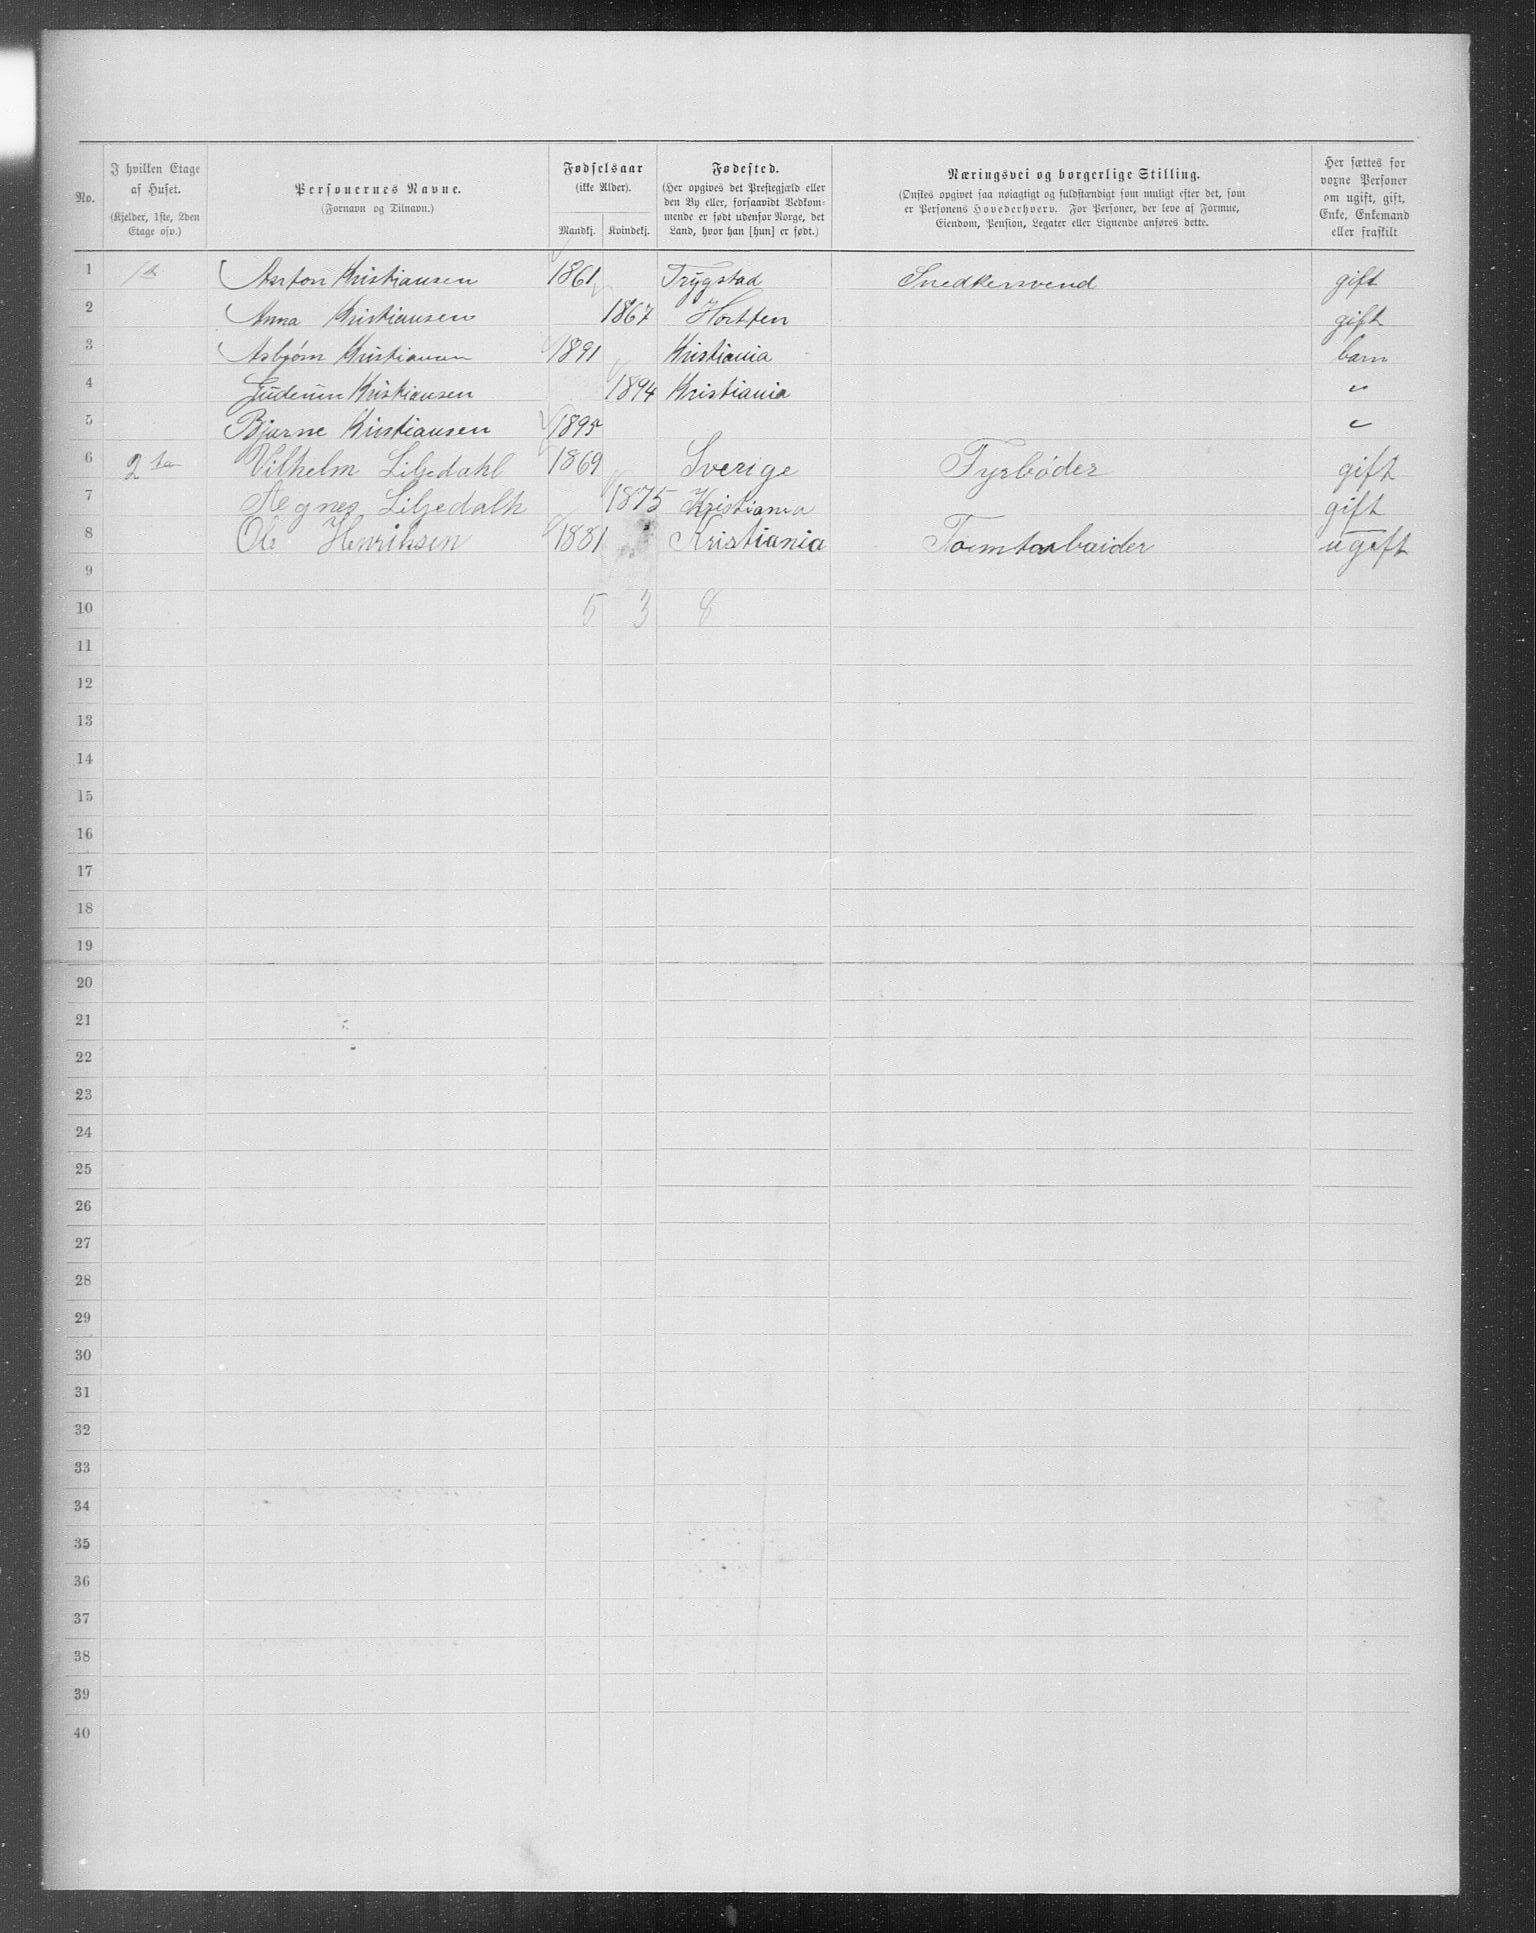 No.
I hvilken Etage
af Huset.
(Kjelder, 1ste, 2den
Etage osv.)
Personernes Navne.
(Fornavn og Tilnavn.)
Fødselsaar
(ikke Alder).
Mandkj. Kvindekj.
Fødested.
(Her opgives det Prestegjæld eller
den By eller, forsaavidt Vedkom-
mende er født udenfor Norge, det
Land, hvor han [hun] er født.)
Næringsvei og borgerlige Stilling.
(Ønskes opgivet saa nøiagtigt og fuldstændigt som muligt efter det, som
er Personens Hovederhverv. For Personer, der leve af Formue,
Eiendom, Pension, Legater eller Lignende anføres dette.
Her sættes for
voxne Personer
om ugift, gift,
Enke, Enkemand
eller fraskilt
1 Anton Kristiansen 1861 Trygstad Snedkersvend gift
2 Anna Kristiansen 1867 Hortten gift
3 Asbjørn Kristiansen 1891 Kristiania barn
4 Guderun Kristiansen 1894 Kristiania "
5 Bjarne Kristiansen 1895 "
6 2 Vilhelm Liljedahl 1869 Sverige Fyrbøder gift
7 Agnes Liljedalh 1875 Kristiania gift
8 Ole Henriksen 1881 Kristiania Tomtarbaider ugift
9
10 5 3 8
11
12
13
14
15
16
17
18
19
20
21
22
23
24
25
26
27
28
29
30
31
32
33
34
35
36
37
38
39
40